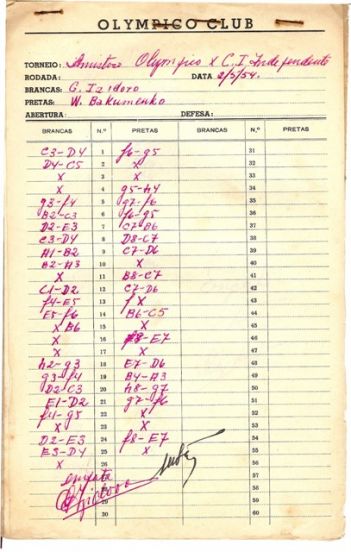 OLYMPICO CLUB
TORNEIO: Amistoso Olympico x C. I. Independente
RODADA: DATA 2/5/54.
BRANCAS: G. Izidoro
PRETAS: W. Bakumenko
ABERTURA: DEFESA:
BRANCAS N.º PRETAS N.º PRETAS
C3-D4 1 f6-g5 31
D4-C5 2 X 32
X 3 X 33
X 4 g5-h4 34
g3-f4 5 g7-f6 35
B2-C3 6 f6-g5 36
D2-E3 7 C7-B6 37
C3-D4 8 D8-C7 38
A1-B2 9 C7-D6 39
B2-A3 10 X 40
X 11 B8-C7 41
C1-D2 12 C7-D6 42
f4-E5 13 f X 43
E5-f6 14 B6-C5 44
X B6 15 X 45
X 16 f8-E7 46
X 17 X 47
h2-g3 18 E7-D6 48
g3-f4 19 B4-A3 49
D2-C3 20 h8-g7 50
E1-D2 21 g7-f6 51
f4-g5 22 X 52
X 23 X 53
D2-E3 24 f8-E7 54
E3-D4 25 X 55
X 26 56
empate 57
58
59
30 60